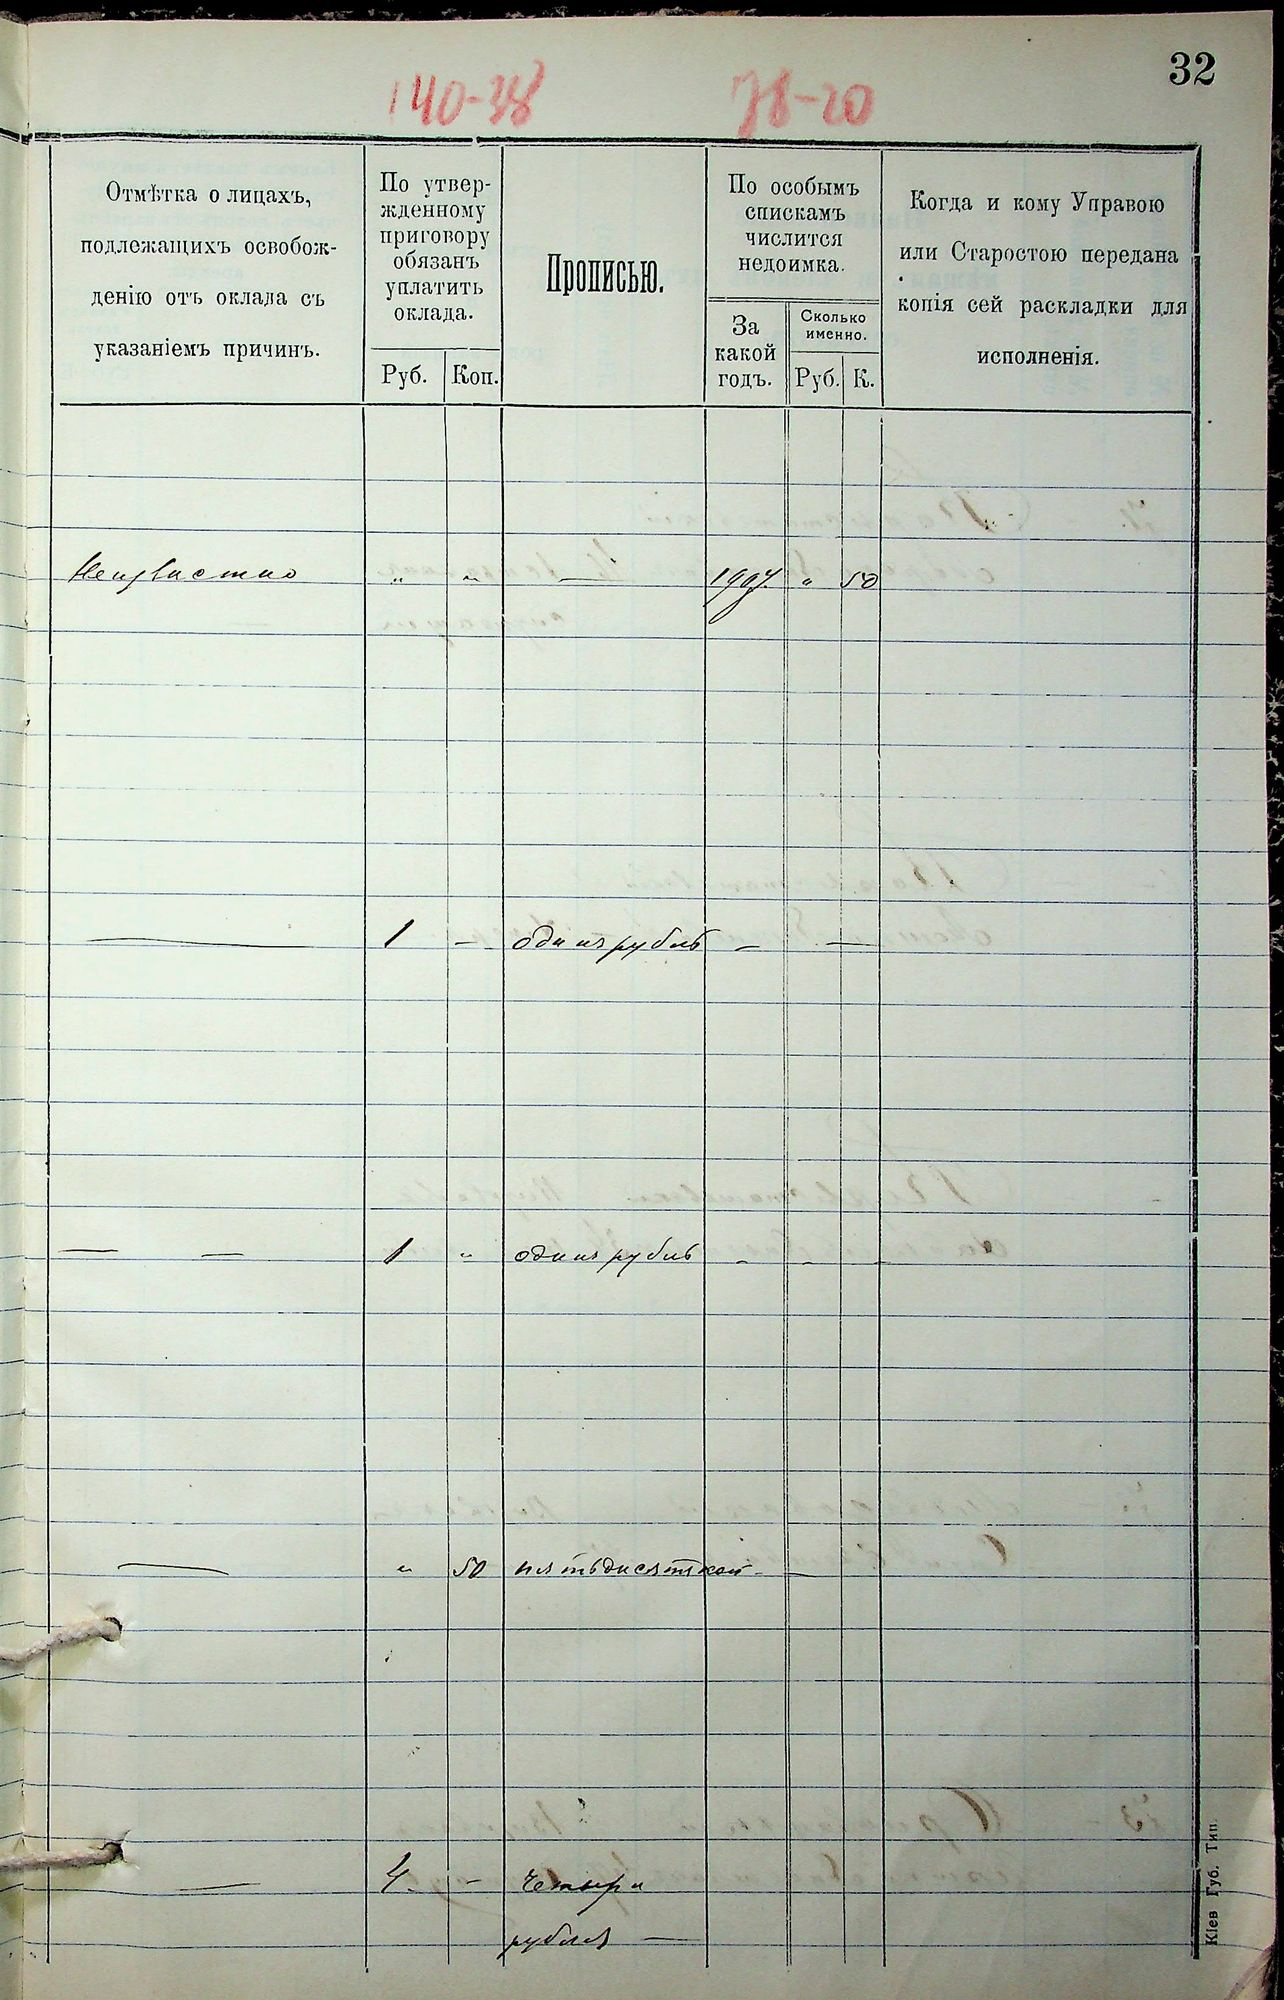 32
140-38 78-20
Отмѣтка о лицахъ,
подлежащихъ освобож-
денію отъ оклада съ
указаніемъ причинъ.
По утвер-
жденному
приговору
обязанъ
уплатить
оклада.
Руб. Коп.
Прописью.
По особымъ
спискамъ
числится
недоимка.
За
какой
годъ.
Сколько
именно.
Руб. К.
Когда и кому Управою
или Старостою передана
копія сей раскладки для
исполненія.
Неизвистно " " — 1907. " 50
— 1 — одинъ рубль — —
— — 1 " одинъ рубль - - -
— " 50 пятьдисятъ коп - —
— 4. - Четыри
рубля —
Кіев Губ. Тип.